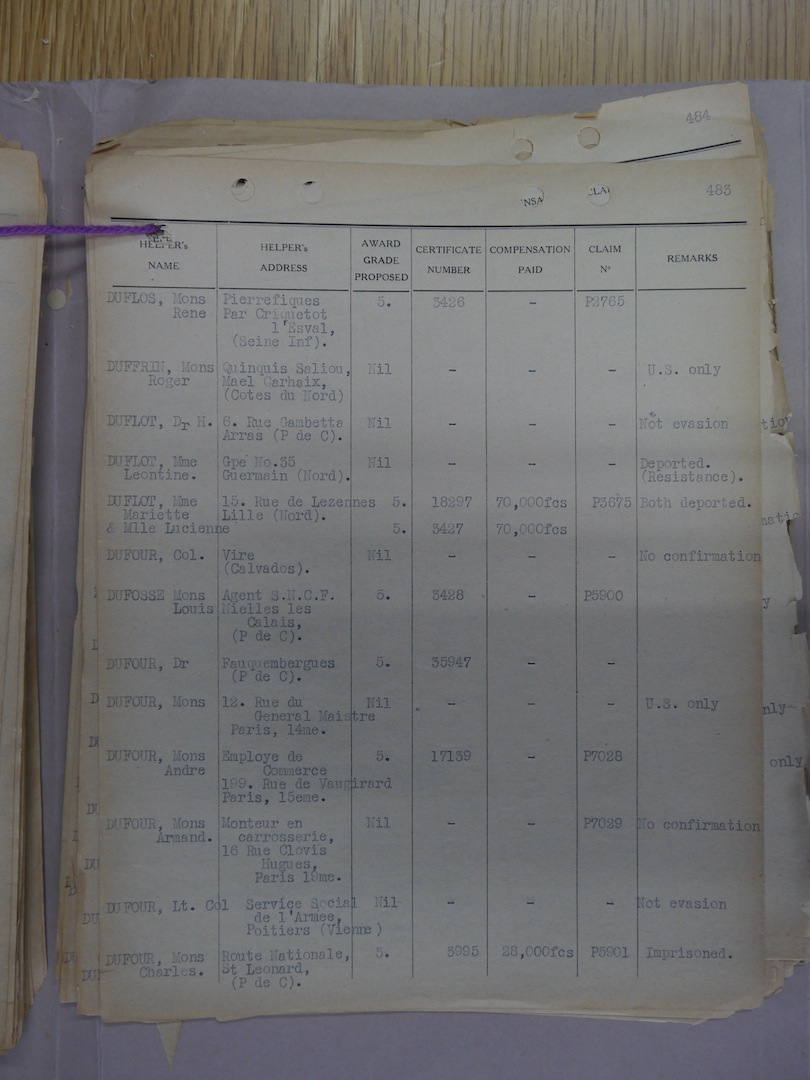 484
483
'NSA CLAI
HELPER's NAME HELPER's ADDRESS AWARD GRADE PROPOSED CERTIFICATE NUMBER COMPENSATION PAID CLAIM Nº REMARKS
DUFLOS, Mons Pierrefiques 5. 3426 - P2765
Rene Par Criquetot
l'Esval,
(Seine Inf).
DUFFRIN, Mons Quinquis Saliou, Nil - - - U.S. only
Roger Mael Carhaix,
(Cotes du Nord)
DUFLOT, Dr H. 6. Rue Gambetta Nil - - - Not evasion
Arras (P de C).
DUFLOT, Mme Gpe No.35 Nil - - - Deported.
Leontine. Guermain (Nord). (Resistance).
DUFLOT, Mme 15. Rue de Lezennes 5. 18297 70,000fcs P3675 Both deported.
Mariette Lille (Nord).
& Mlle Lucienne 5. 3427 70,000fcs
DUFOUR, Col. Vire Nil - - - No confirmation
(Calvados).
DUFOSSE Mons Agent S.N.C.F. 5. 3428 - P5900
Louis Nielles les
Calais,
(P de C).
DUFOUR, Dr Fauquembergues 5. 35947 - -
(P de C).
DUFOUR, Mons 12. Rue du Nil - - - U.S. only
General Maistre
Paris, 14me.
DUFOUR, Mons Employe de 5. 17139 - P7028
Andre Commerce
199. Rue de Vaugirard
Paris, 15eme.
DUFOUR, Mons Monteur en Nil - - P7029 No confirmation
Armand. carrosserie,
16 Rue Clovis
Hugues,
Paris 19me.
DUFOUR, Lt. Col Service Social Nil - - - Not evasion
de l'Armee,
Poitiers (Vienne)
DUFOUR, Mons Route Nationale, 5. 3995 28,000fcs P5901 Imprisoned.
Charles. St Leonard,
(P de C).